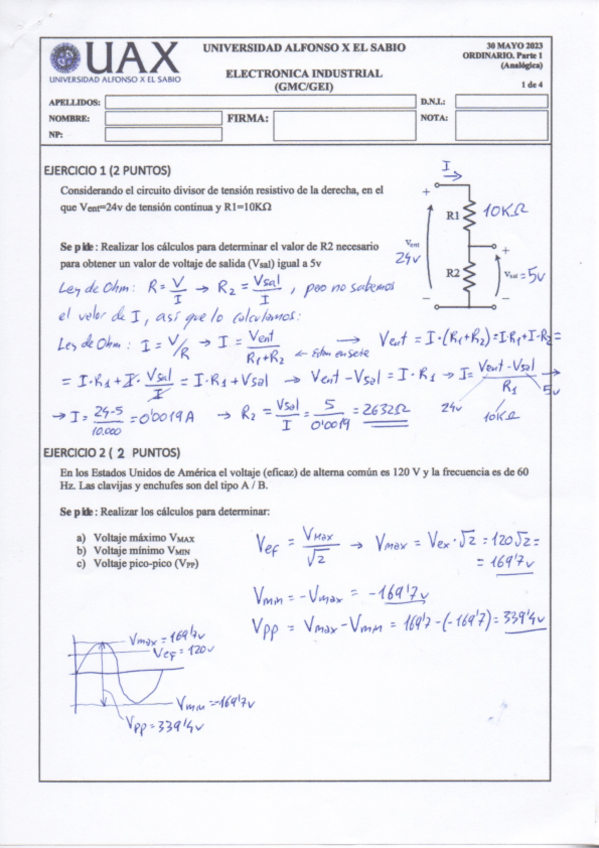 UAX
UNIVERSIDAD ALFONSO X EL SABIO
UNIVERSIDAD ALFONSO X EL SABIO
ELECTRONICA INDUSTRIAL
(GMC/GEI)
30 MAYO 2023
ORDINARIO. Parte 1
(Analógica)
1 de 4
APELLIDOS:
D.N.I.:
NOMBRE:
FIRMA:
NOTA:
NP:
EJERCICIO 1 (2 PUNTOS)
Considerando el circuito divisor de tensión resistivo de la derecha, en el
que Vent=24v de tensión continua y R1=10KΩ
Se pide: Realizar los cálculos para determinar el valor de R2 necesario
para obtener un valor de voltaje de salida (Vsal) igual a 5v
I
+
R1
10KΩ
Vent
24v
+
R2
Vsal = 5v
−
−
Ley de Ohm: R = V/I → R2 = Vsal/I , pero no sabemos
el valor de I, así que lo calculamos:
Ley de Ohm: I = V/R → I = Vent/(R1+R2) ← están en serie → Vent = I·(R1+R2) = I·R1+I·R2 =
= I·R1 + I·Vsal/I = I·R1 + Vsal → Vent − Vsal = I·R1 → I = (Vent − Vsal)/R1 →
24v 10KΩ 5v
→ I = (24-5)/10.000 = 0'0019 A → R2 = Vsal/I = 5/0'0019 = 2632Ω
EJERCICIO 2 ( 2 PUNTOS)
En los Estados Unidos de América el voltaje (eficaz) de alterna común es 120 V y la frecuencia es de 60
Hz. Las clavijas y enchufes son del tipo A / B.
Se pide: Realizar los cálculos para determinar:
a) Voltaje máximo VMAX
b) Voltaje mínimo VMIN
c) Voltaje pico-pico (VPP)
Vef = Vmax/√2 → Vmax = Vex·√2 = 120√2 =
= 169'7v
Vmin = −Vmax = −169'7v
Vpp = Vmax − Vmin = 169'7 − (−169'7) = 339'4v
Vmax = 169'7v
Vef = 120v
Vmin = −169'7v
Vpp = 339'4v